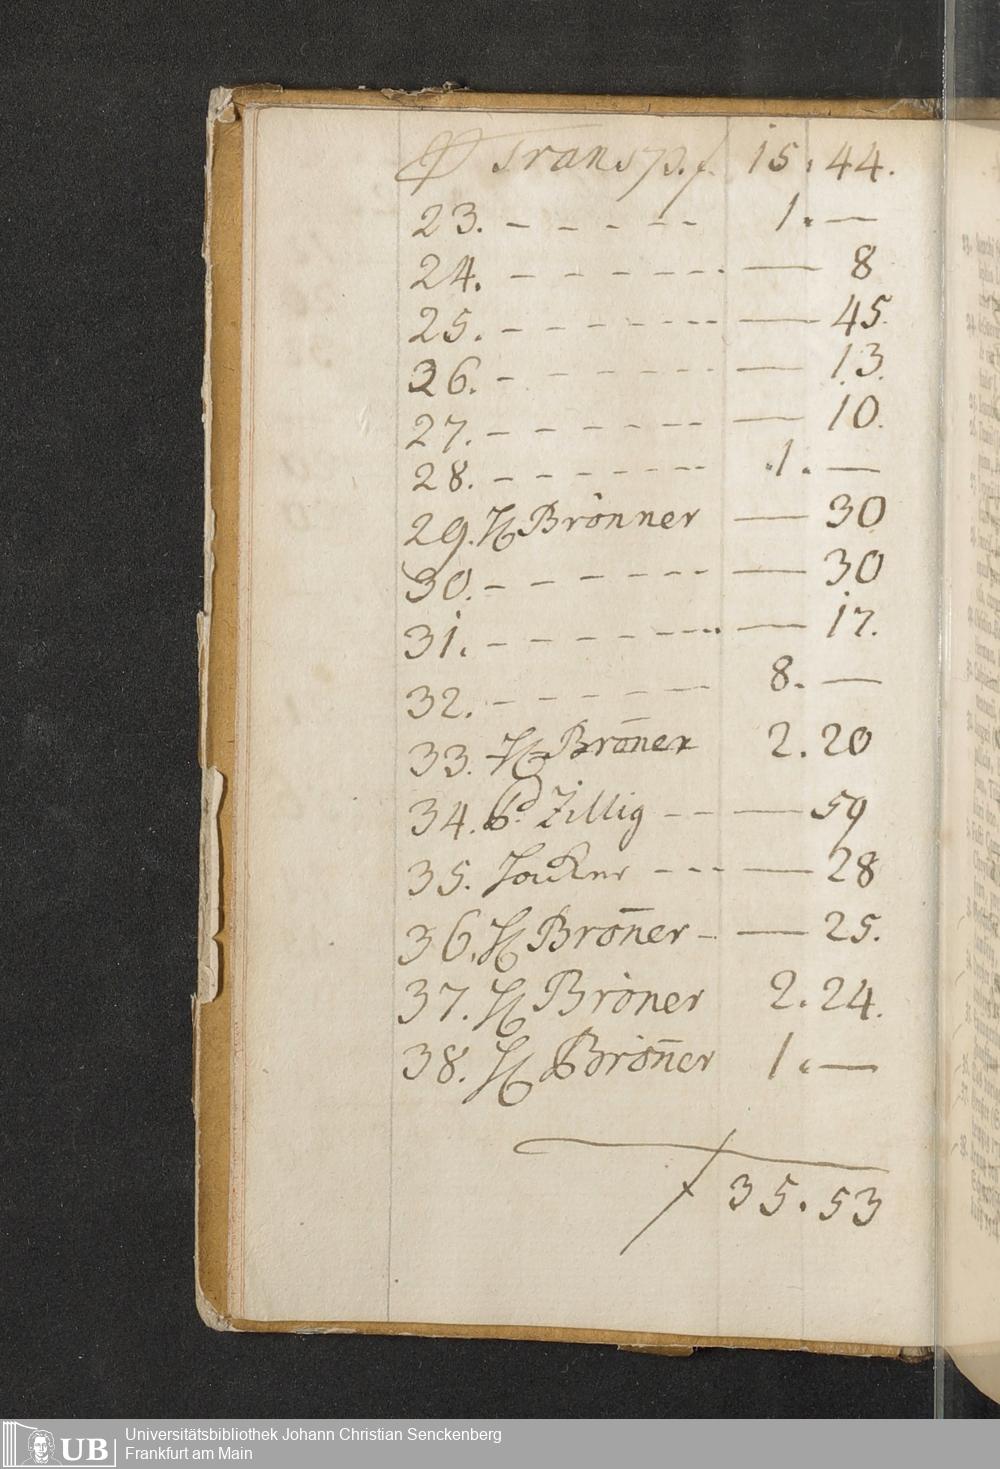 Transp. f. 15. 44.
23. - - - - - 1. —
24. - - - - - - — 8
25. - - - - - - - — 45.
26. - - - - - - — 13.
27. - - - - - - — 10.
28. - - - - - - - .1. —
29. H Brönner — 30
30. - - - - - - — 30
31. - - - - - - - — 17.
32. - - - - - - 8. —
33. H Brön̄er 2. 20
34. Zillig - - — 59
35. - - - — 28
36. H Bron̄er - — 25.
37. H Bröner 2. 24.
38. H Brön̄er 1. —
f 35. 53
UB Universitätsbibliothek Johann Christian Senckenberg
Frankfurt am Main